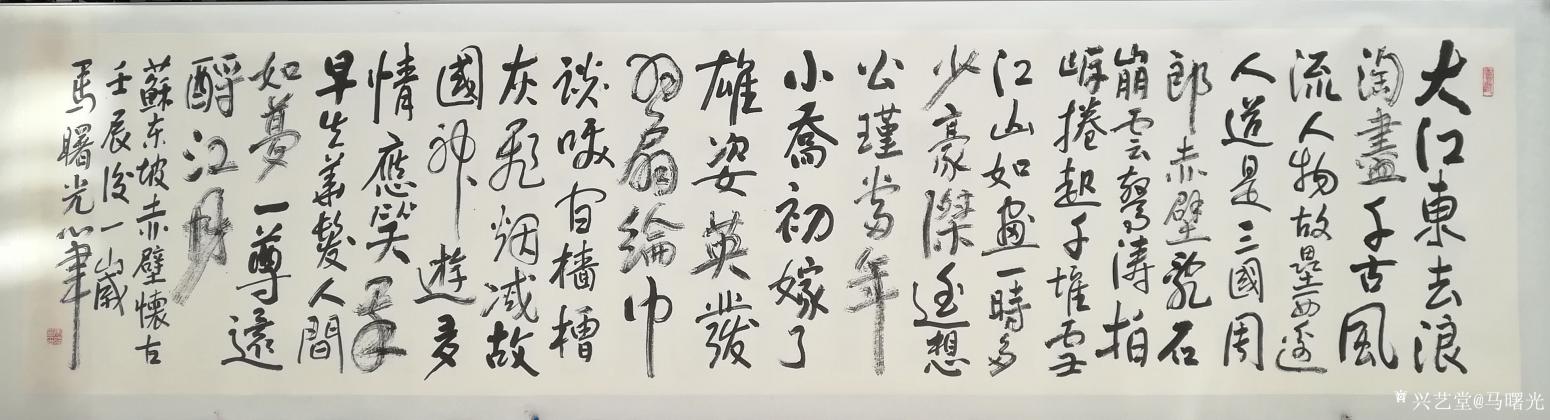 大江東去浪
淘盡千古風
流人物故壘西邊
人道是三國周
郎赤壁亂石
崩雲驚濤拍
岸捲起千堆雪
江山如畫一時多
少豪傑遥想
公瑾當年
小喬初嫁了
雄姿英發
羽扇綸巾
談咲間檣櫓
灰飛烟滅故
國神遊多
情應笑我
早生華髮人間
如夢一尊還
酹江月
蘇東坡赤壁懷古
壬辰後一歲
馬曙光心筆
兴艺堂@马曙光